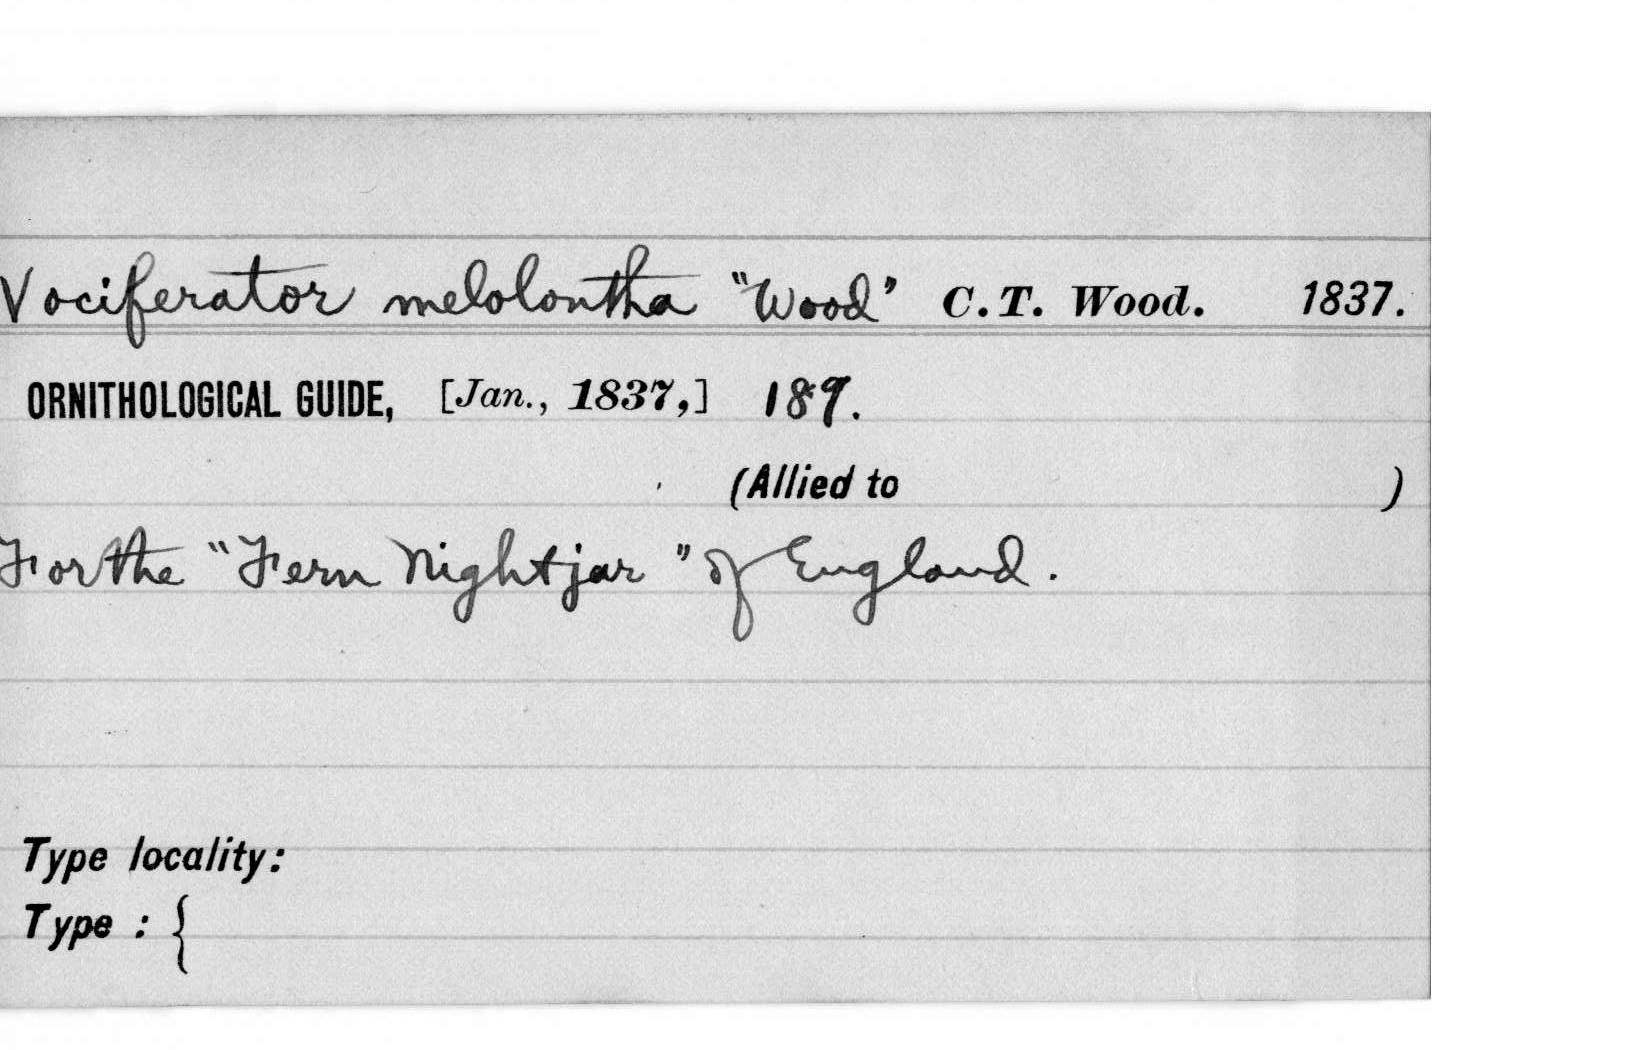 Vociferator melolontha "Wood" C.T. Wood. 1837.
ORNITHOLOGICAL GUIDE, [Jan., 1837,] 189.
(Allied to )
For the "Fern Nightjar" of England.
Type locality:
Type : {